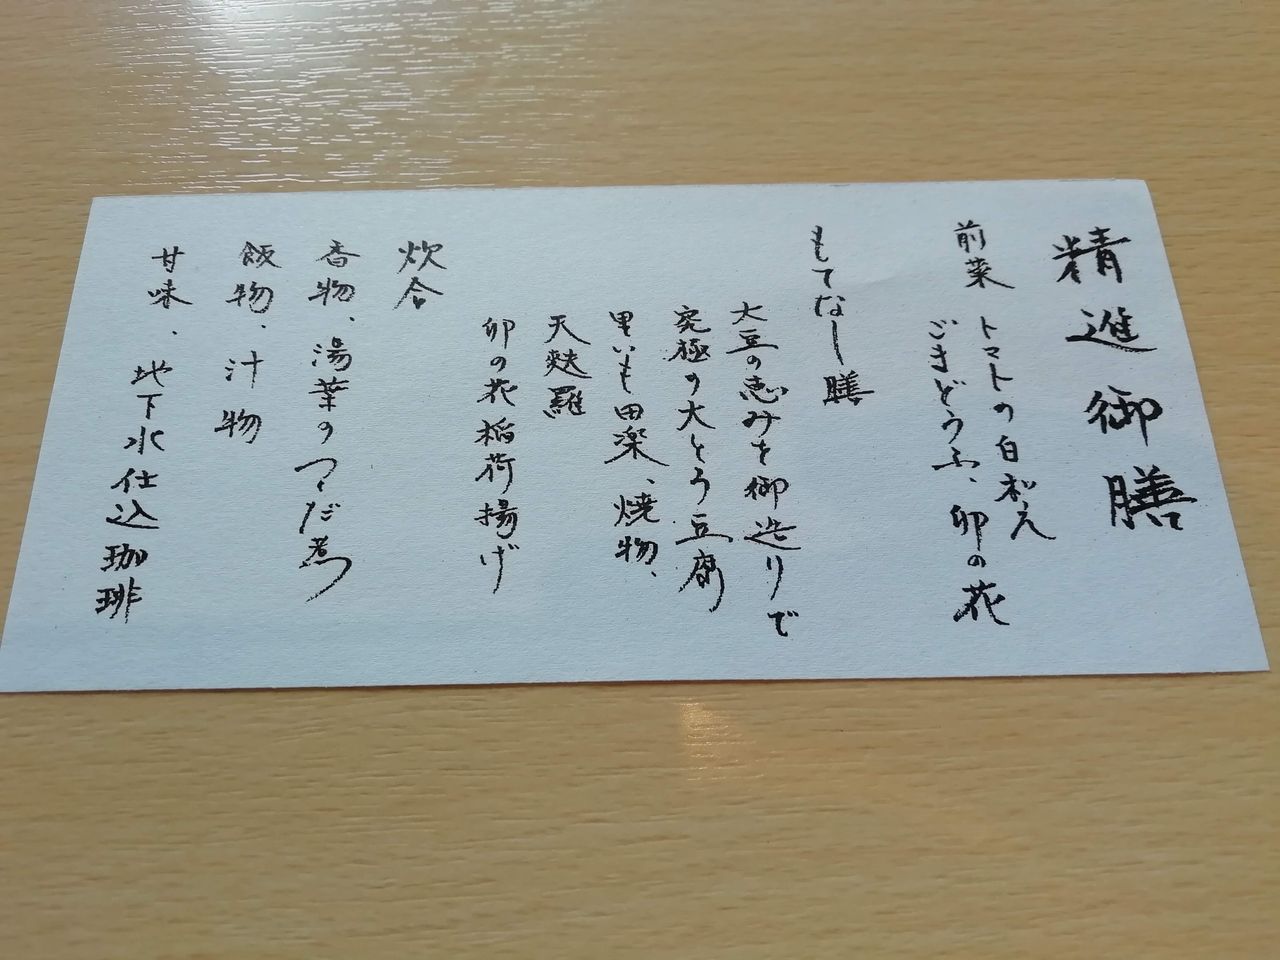 精進御膳
前菜 トマトの白和え
ごまどうふ、卯の花
もてなし膳
大豆の恵みを御造りで
究極の大とろ豆腐
里いも田楽、焼物、
天麩羅
卯の花稲荷揚げ
炊合
香物、湯葉のつくだ煮
飯物、汁物
甘味、地下水仕込珈琲